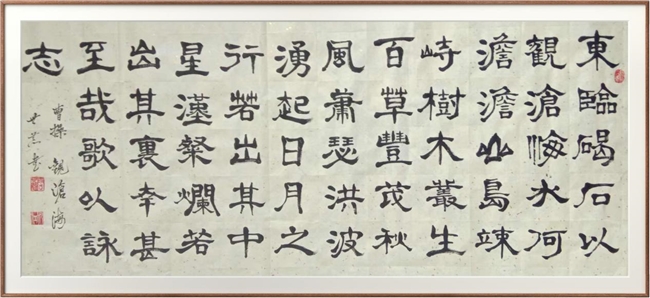 東臨碣石以
觀滄海水何
澹澹山島竦
峙樹木叢生
百草豐茂秋
風蕭瑟洪波
湧起日月之
行若出其中
星漢粲爛若
出其裏幸甚
至哉歌以詠
志
曹操 觀滄海
書